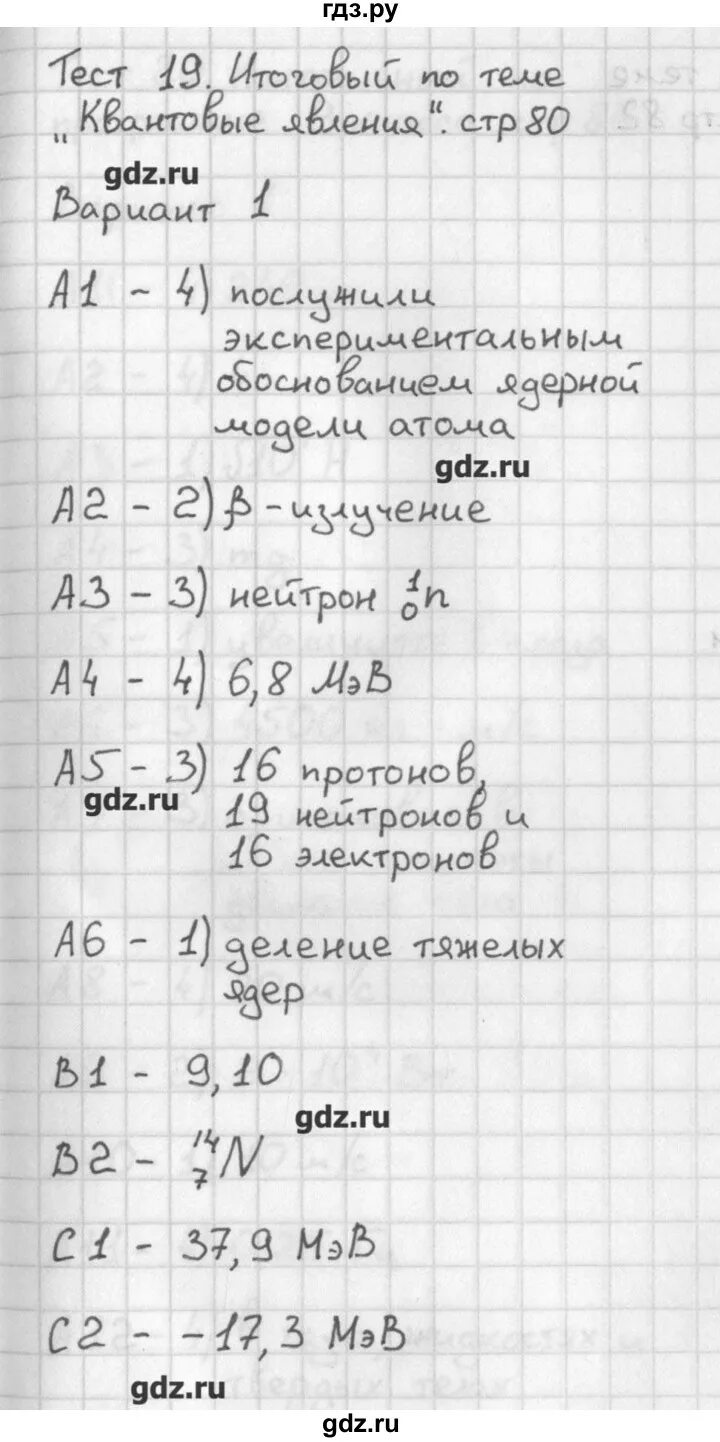 гдз.ру
Тест 19. Итоговый по теме
„Квантовые явления“. стр 80
gdz.ru
Вариант 1
А1 - 4) послужили
экспериментальным
обоснованием ядерной
модели атома
gdz.ru
А2 - 2) β - излучение
А3 - 3) нейтрон ¹₀n
А4 - 4) 6,8 МэВ
А5 - 3) 16 протонов,
gdz.ru
19 нейтронов и
16 электронов
А6 - 1) деление тяжелых
ядер
В1 - 9,10
gdz.ru
В2 - ¹⁴₇N
С1 - 37,9 МэВ
С2 - -17,3 МэВ
gdz.ru
gdz.ru